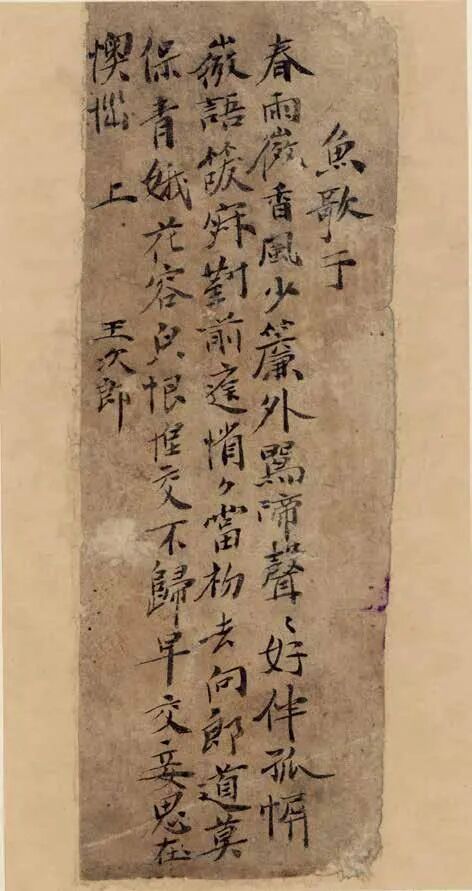 魚歌子
春雨微香風少簾外鸎啼聲〻好伴孤屏
微語笑寂對前庭悄〻當初去向郎道莫
保青娥花容皃恨惶交不歸早交妾思在
懊惱 上 王次郎